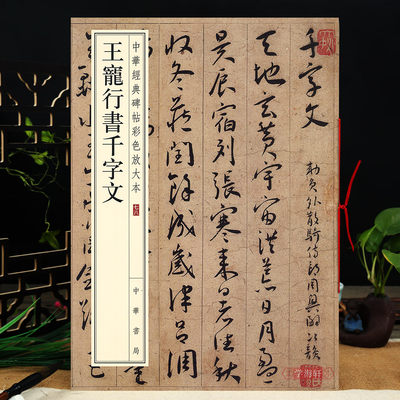 千字文
勑員外散騎侍郎周興嗣次韻
天地玄黃宇宙洪荒日月盈
昃辰宿列張寒来暑往秋
收冬藏閏餘成歲律呂調
中華經典碑帖彩色放大本
王寵行書千字文
中華書局